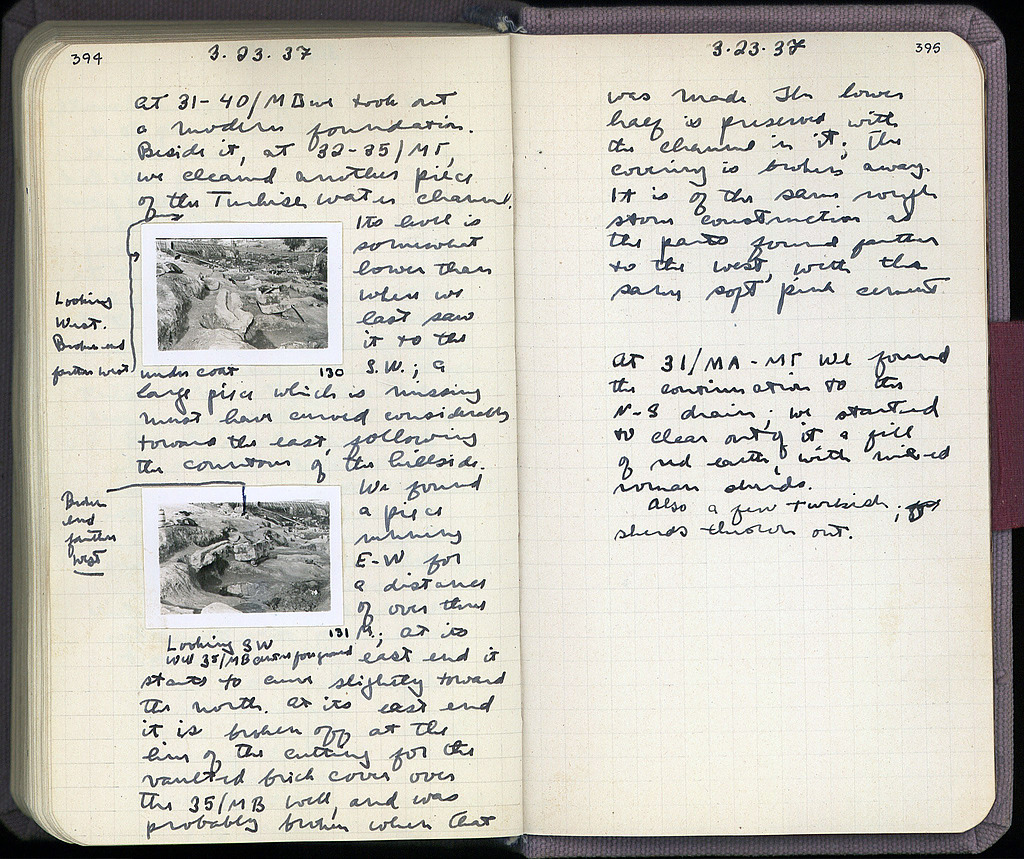 394
3·23·37
At 31-40/MB we took out
a modern foundation.
Beside it, at 32-35/MΓ,
we cleaned another piece
of the Turkish water channel.
Its level is
somewhat
lower than
when we
last saw
it to the
S.W.; a
Looking
West.
Broken end
farther west
130
large piece which is missing
must have curved considerably
toward the east, following
the contours of the hillside.
We found
a piece
running
E-W for
a distance
of over three
M.; at its
east end it
Broken
end
farther
west
131
Looking SW
Well 35/MB in foreground
starts to curve slightly toward
the north. At its east end
it is broken off at the
line of the cutting for the
vaulted brick cover over
the 35/MB well, and was
probably broken when that
3·23·37
395
was made. The lower
half is preserved with
the channel in it; the
covering is broken away.
It is of the same rough
stone construction as
the parts found farther
to the west, with the
same soft pink cement
At 31/MA-MΓ we found
the continuation to the
N-S drain; we started
to clear out of it a fill
of red earth, with mixed
roman sherds.
Also a few turkish;
sherds thrown out.